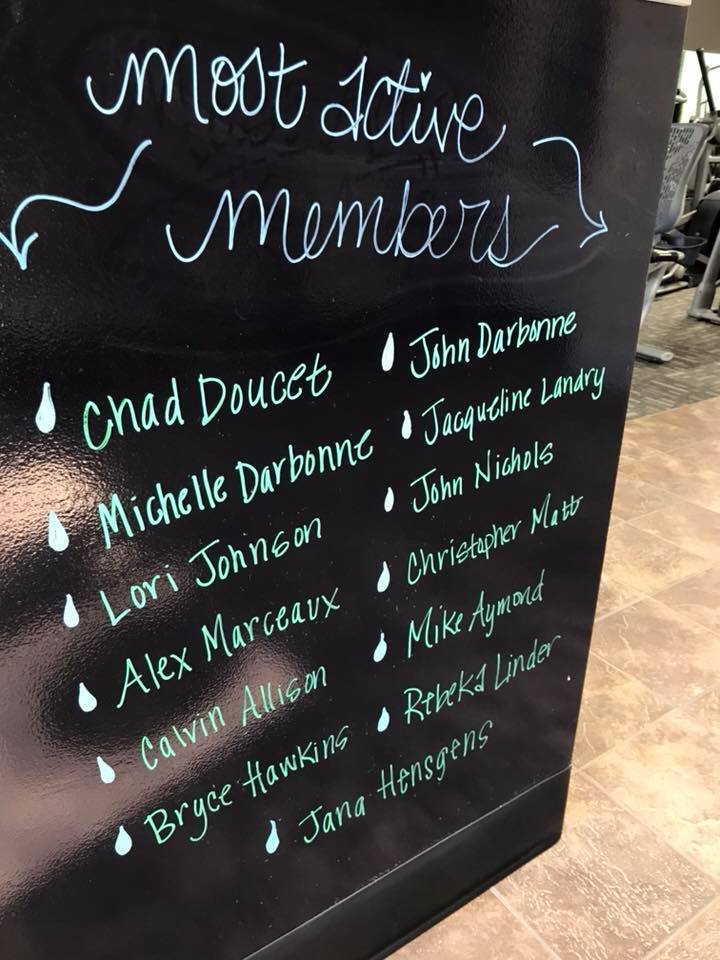 most active
members
Chad Doucet
Michelle Darbonne
Lori Johnson
Alex Marceaux
Calvin Allison
Bryce Hawkins
John Darbonne
Jacqueline Landry
John Nichols
Christopher Matt
Mike Aymond
Rebeka Linder
Jana Hensgens